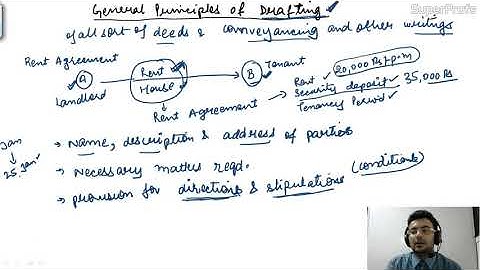 SuperProfs
General Principles of Drafting
of all sort of deeds & conveyancing and other writings
Rent Agreement
A
Landlord
Rent
House
B
Tenant
Rent 20,000 Rs p.m
Security deposit 35,000 Rs
Tenancy Period
Rent Agreement
Jan
25 Jan
→ Name, description & address of parties
→ Necessary matters reqd.
→ provision for directions & stipulations (conditions)